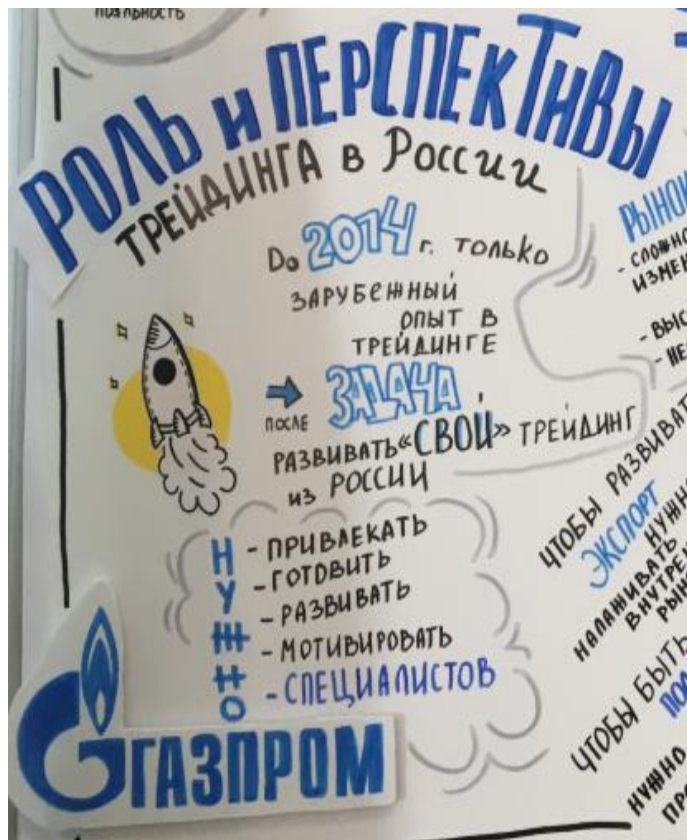 лояльность
РОЛЬ и ПЕРСПЕКТИВЫ
ТРЕЙДИНГА в России
До 2014 г. только
ЗАРУБЕЖНЫЙ
ОПЫТ В
ТРЕЙДИНГЕ
→ ЗАДАЧА
ПОСЛЕ
РАЗВИВАТЬ «СВОЙ» ТРЕЙДИНГ
из РОССИИ
НУЖНО
- ПРИВЛЕКАТЬ
- ГОТОВИТЬ
- РАЗВИВАТЬ
- МОТИВИРОВАТЬ
- СПЕЦИАЛИСТОВ
ГАЗПРОМ
РЫНОК
ЧТОБЫ РАЗВИВАТ
ЭКСПОРТ
НУЖНО
НАЛАЖИВАТЬ
ЧТОБЫ БЫТЬ
НУЖНО